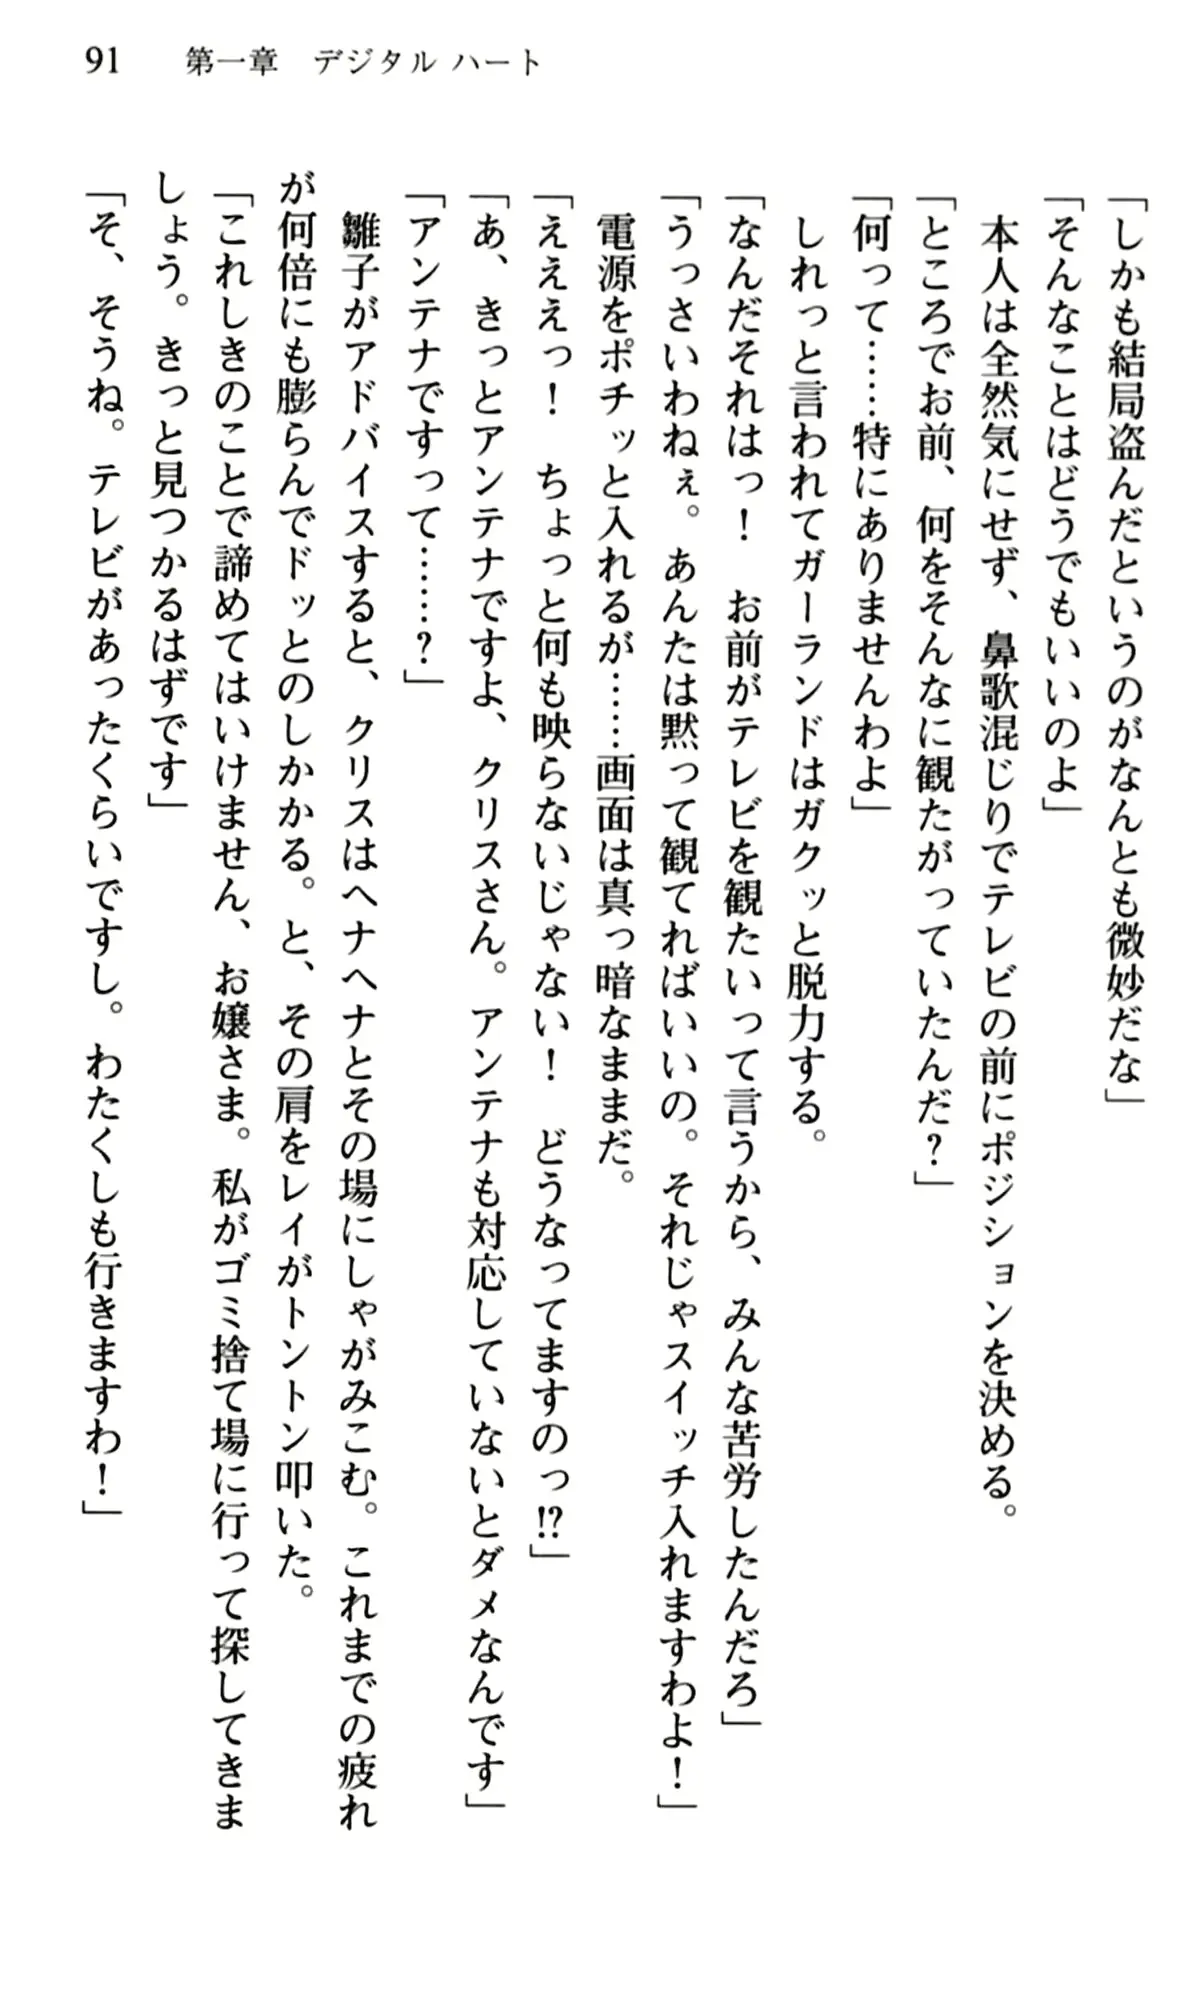 91　第一章　デジタル ハート
「しかも結局盗んだというのがなんとも微妙だな」
「そんなことはどうでもいいのよ」
　本人は全然気にせず、鼻歌混じりでテレビの前にポジションを決める。
「ところでお前、何をそんなに観たがっていたんだ？」
「何って……特にありませんわよ」
　しれっと言われてガーランドはガクッと脱力する。
「なんだそれはっ！　お前がテレビを観たいって言うから、みんな苦労したんだろ」
「うっさいわねぇ。あんたは黙って観てればいいの。それじゃスイッチ入れますわよ！」
　電源をポチッと入れるが……画面は真っ暗なままだ。
「えええっ！　ちょっと何も映らないじゃない！　どうなってますのっ!?」
「あ、きっとアンテナですよ、クリスさん。アンテナも対応していないとダメなんです」
「アンテナですって……？」
　雛子がアドバイスすると、クリスはヘナヘナとその場にしゃがみこむ。これまでの疲れ
が何倍にも膨らんでドッとのしかかる。と、その肩をレイがトントン叩いた。
「これしきのことで諦めてはいけません、お嬢さま。私がゴミ捨て場に行って探してきま
しょう。きっと見つかるはずです」
「そ、そうね。テレビがあったくらいですし。わたくしも行きますわ！」